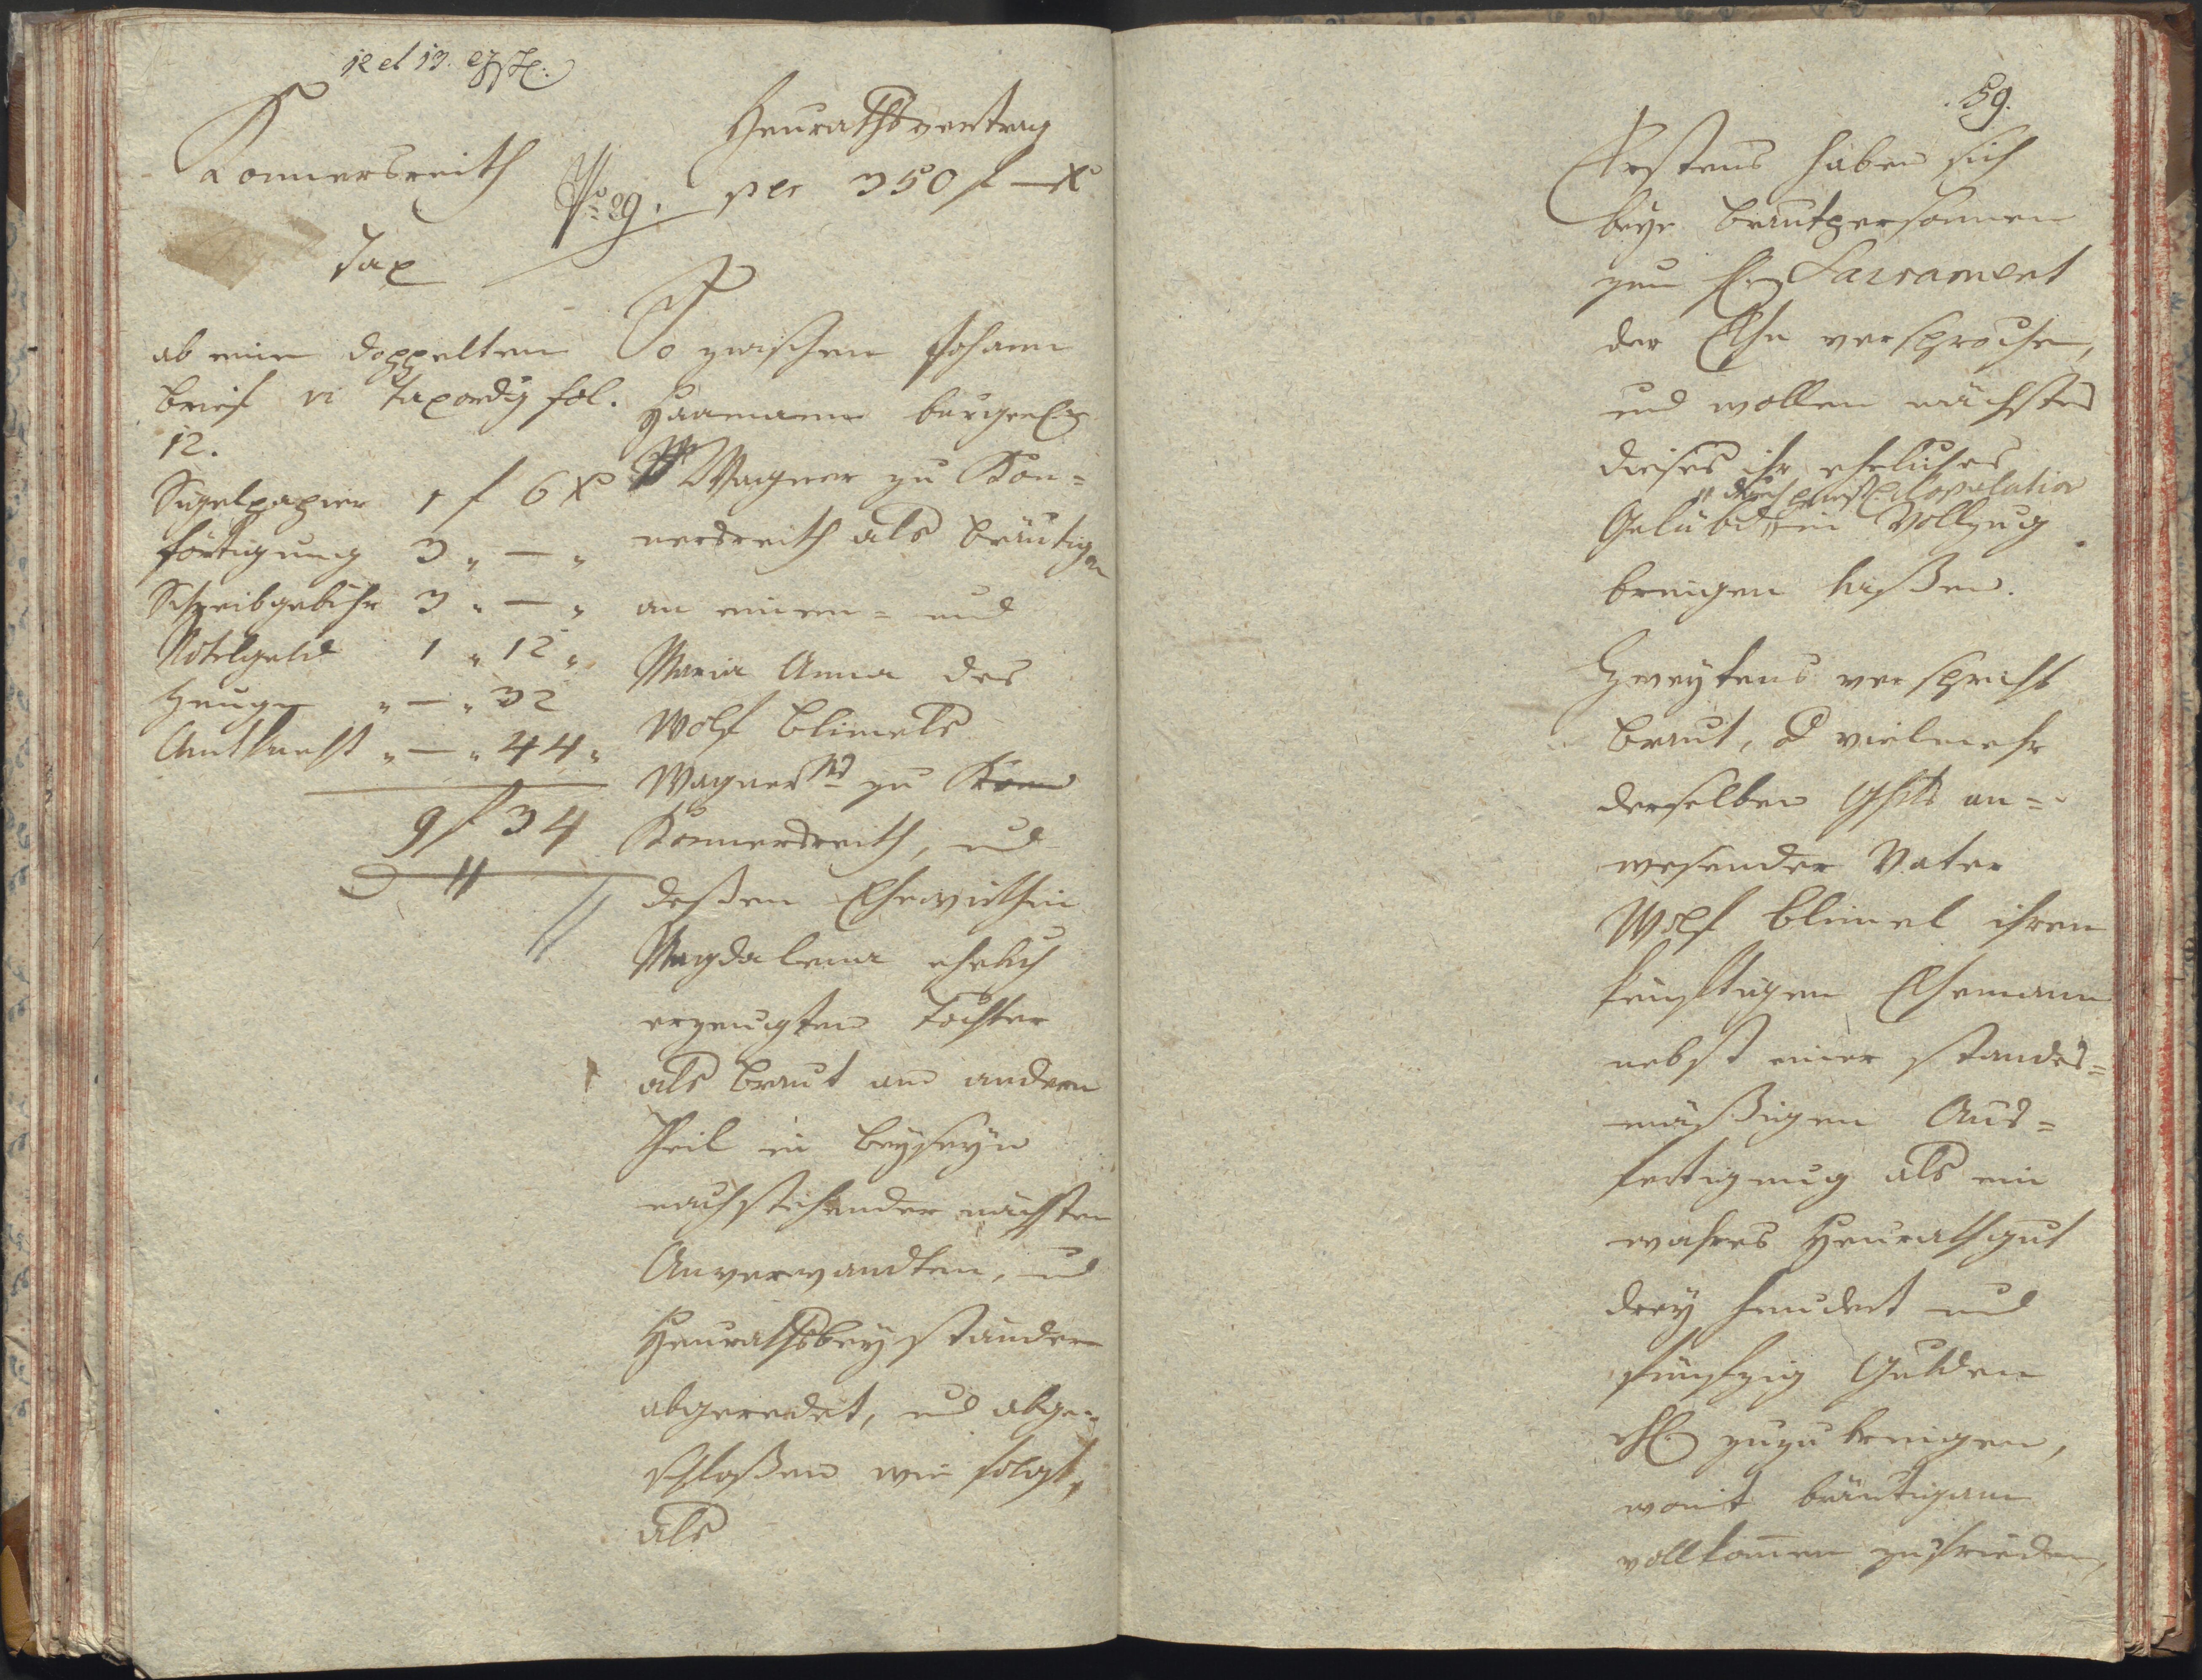 12 et 13.
Konnersreith
Tax
ab einen doppelten
Brief vi Taxordg fol.
12.
Sigelpapier 1 f 6 x
förtigung 3 " — "
Schreibgebühr 3 " — "
Notelgeld 1 " 12 "
Zeugen " — " 32
Amtknecht " — " 44 "
9 f 34
Heurathsvertrag
per 350 f — x
So zwischen Johann
Haamann burgerl.
Wagner zu Kon=
nersreith als Bräutigam
an einem= und
Maria Anna des
Wolf Blimels
Wagners zu Konn
Konnersreith, und
deßen Ehewirthin
Magdalena ehelich
erzeugten Tochter
als Braut am andern
Theil in Beyseyn
nachstehender nächsten
Anverwandten, und
Heurathsbeyständern
abgeredet, und abge=
schloßen wie folgt,
als
59.
Erstens haben sich
beye Brautpersonnen
zum hl. Sacrament
der Ehe versprochen,
und wollen nächstes
dieses ihr eheliches
" durch priestl. Copulation
Gelübd " in Vollzug
bringen laßen.
Zweytens verspricht
Braut, od vielmehr
derselben Ghts an=
wesender Vater
Wolf Blimel ihrem
künftigen Ehemann
nebst einer standes=
mäßigen Aus=
fertigung als ein
wahres Heurathgut
drey hundert und
fünfzig Gulden
zuzubringen,
womit Bräutigam
vollkommen zufrieden,